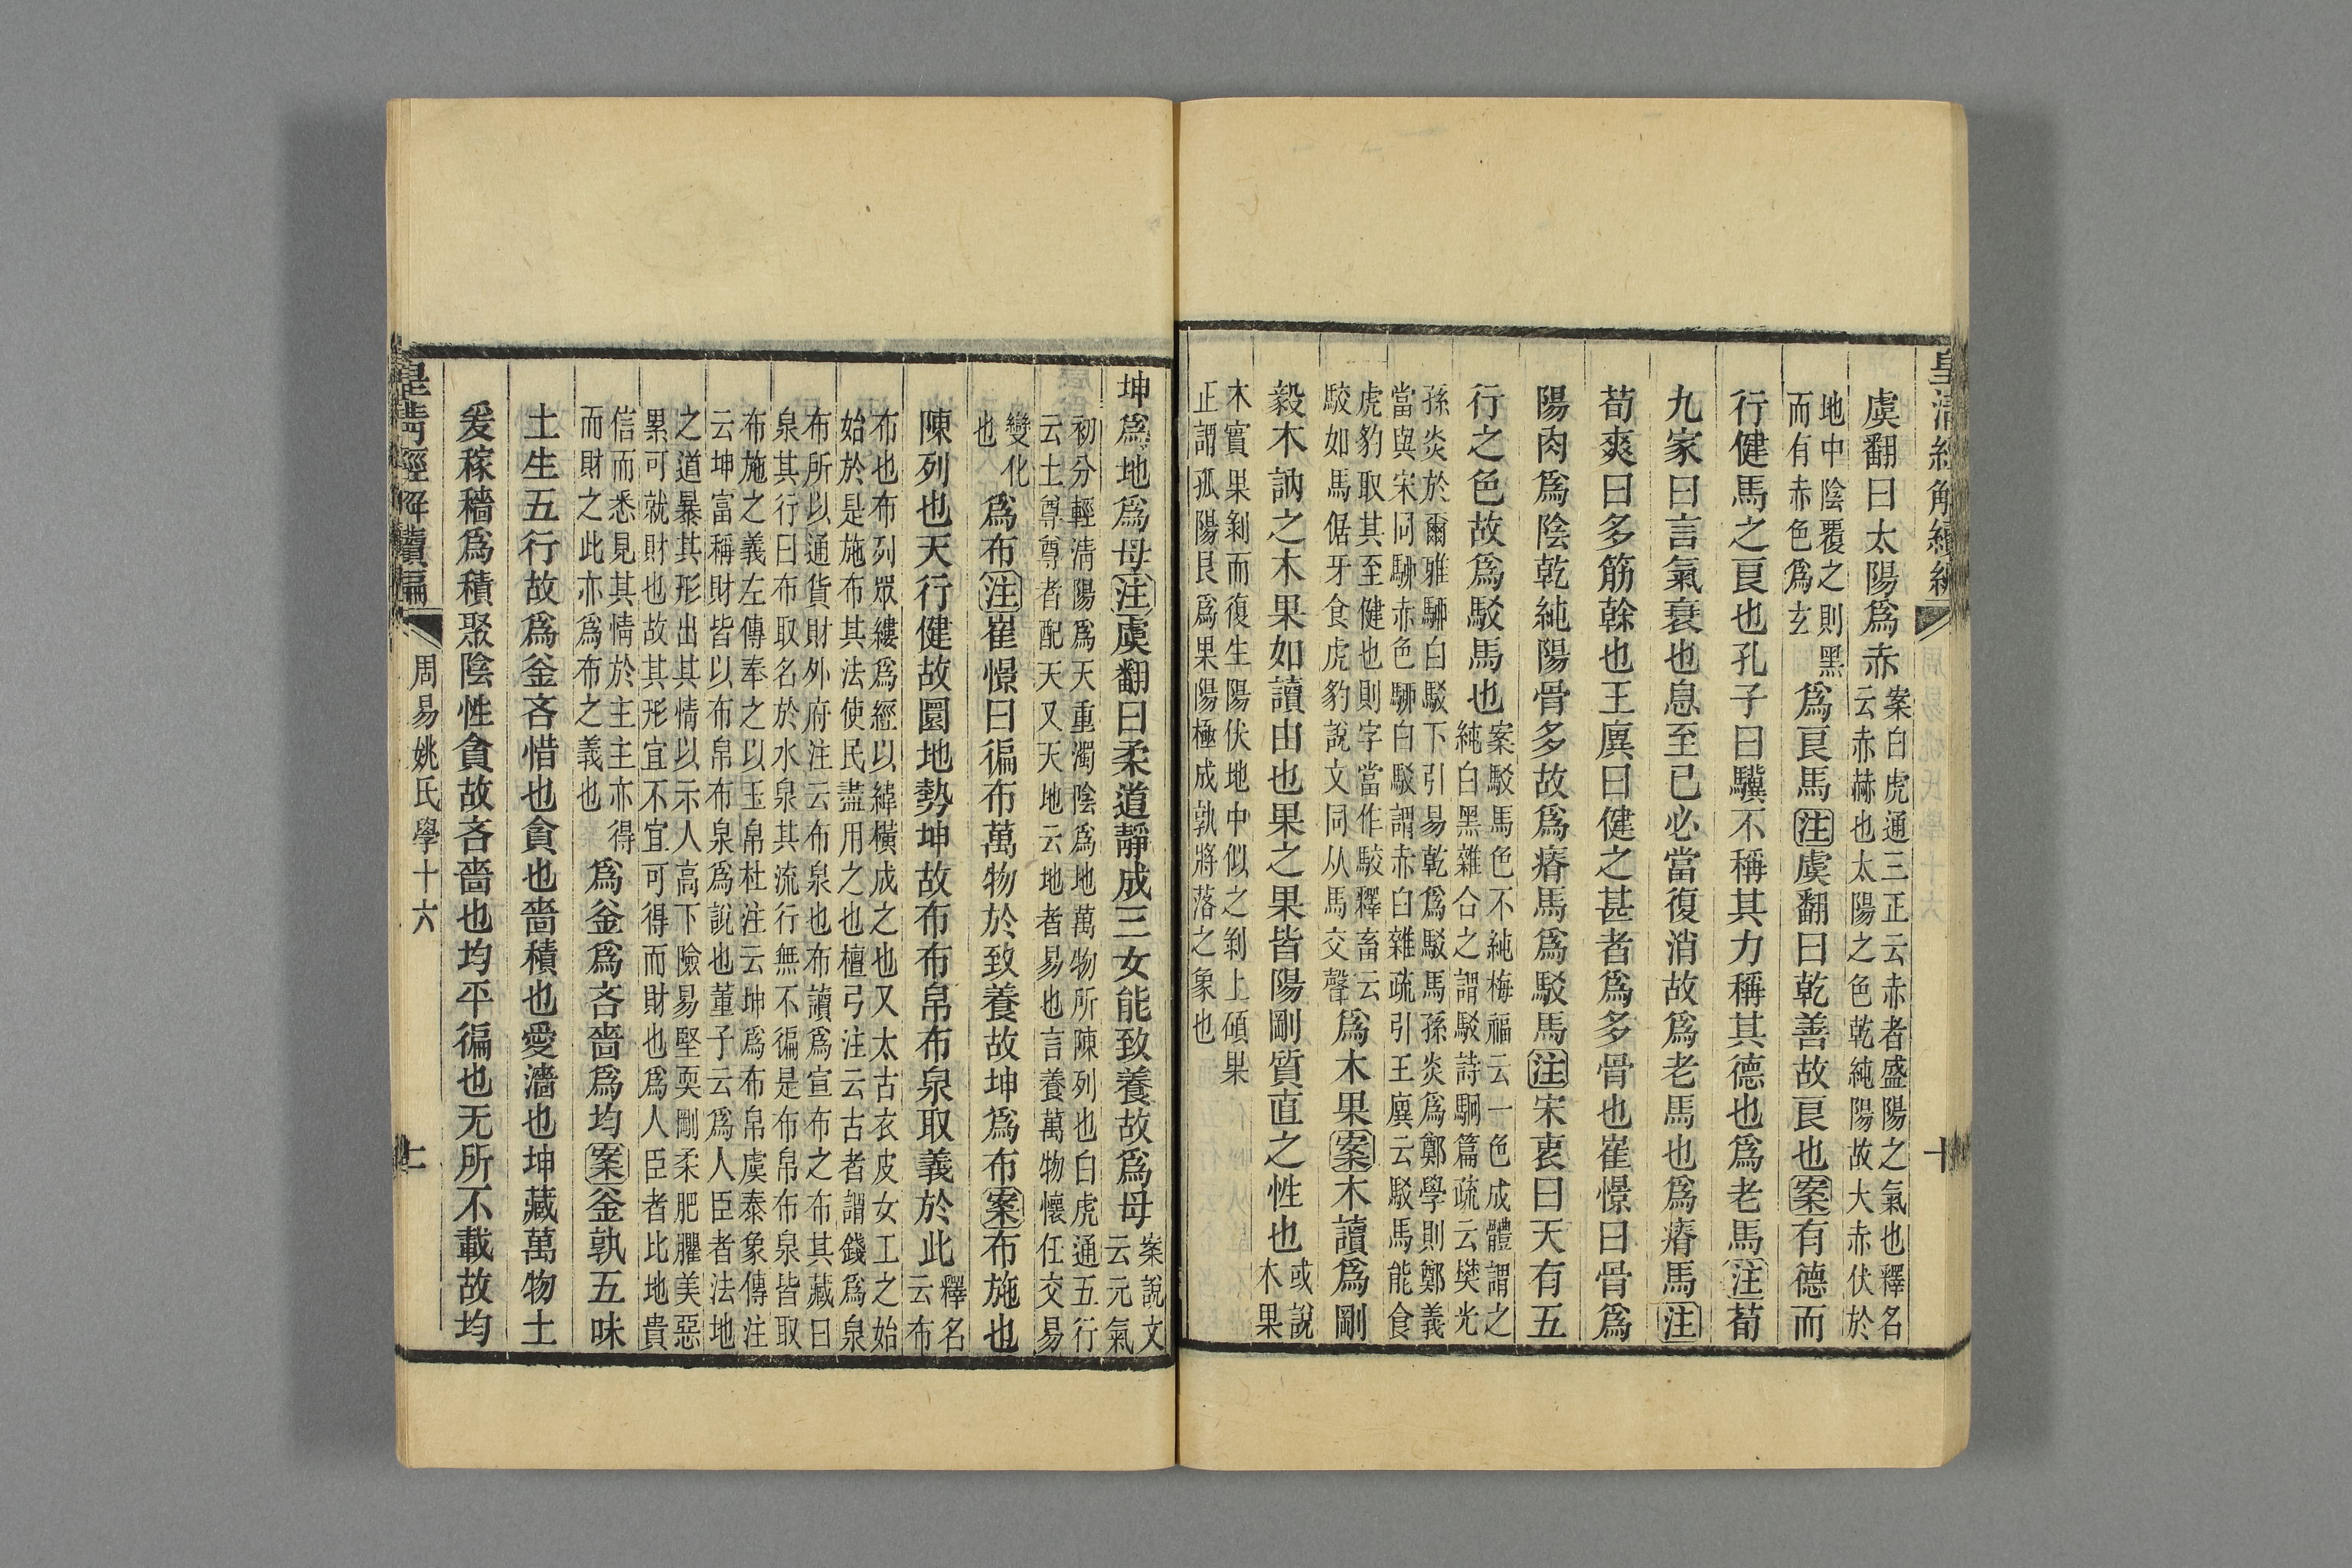 皇清經解續編 周易姚氏學十六 十
虞翻曰太陽爲赤案白虎通三正云赤者盛陽之氣也釋名
云赤赫也太陽之色乾純陽故大赤伏於
地中陰覆之則黑
而有赤色爲玄爲良馬注虞翻曰乾善故良也案有德而
行健馬之良也孔子曰驥不稱其力稱其德也爲老馬注荀
九家曰言氣衰也息至已必當復消故爲老馬也爲瘠馬注
荀爽曰多筋幹也王廙曰健之甚者爲多骨也崔憬曰骨爲
陽肉爲陰乾純陽骨多故爲瘠馬爲駁馬注宋衷曰天有五
行之色故爲駁馬也案駁馬色不純梅福云一色成體謂之
純白黑雜合之謂駁詩駉篇疏云樊光
孫炎於爾雅駵白駁下引易乾爲駁馬孫炎爲鄭學則鄭義
當與宋同駵赤色駵白駁謂赤白雜疏引王廙云駁馬能食
虎豹取其至健也則字當作駮釋畜云
駮如馬倨牙食虎豹說文同从馬交聲爲木果案木讀爲剛
毅木訥之木果如讀由也果之果皆陽剛質直之性也或說
木果
木實果剝而復生陽伏地中似之剝上碩果
正謂孤陽艮爲果陽極成孰將落之象也
坤爲地爲母注虞翻曰柔道靜成三女能致養故爲母案說文
云元氣
初分輕淸陽爲天重濁陰爲地萬物所陳列也白虎通五行
云土尊尊者配天又天地云地者易也言養萬物懷任交易
變化
也爲布注崔憬曰徧布萬物於致養故坤爲布案布施也
陳列也天行健故圜地勢坤故布布帛布泉取義於此釋名
云布
布也布列眾縷爲經以緯橫成之也又太古衣皮女工之始
始於是施布其法使民盡用之也檀弓注云古者謂錢爲泉
布所以通貨財外府注云布泉也布讀爲宣布之布其藏曰
泉其行曰布取名於水泉其流行無不徧是布帛布泉皆取
布施之義左傳奉之以玉帛杜注云坤爲布帛虞泰象傳注
云坤富稱財皆以布帛布泉爲說也董子云爲人臣者法地
之道暴其形出其情以示人高下險易堅耎剛柔肥臞美惡
累可就財也故其形宜不宜可得而財也爲人臣者比地貴
信而悉見其情於主主亦得
而財之此亦爲布之義也爲釜爲吝嗇爲均案釜孰五味
土生五行故爲釜吝惜也貪也嗇積也愛濇也坤藏萬物土
爰稼穡爲積聚陰性貪故吝嗇也均平徧也无所不載故均
皇清經解續編 周易姚氏學十六 十一